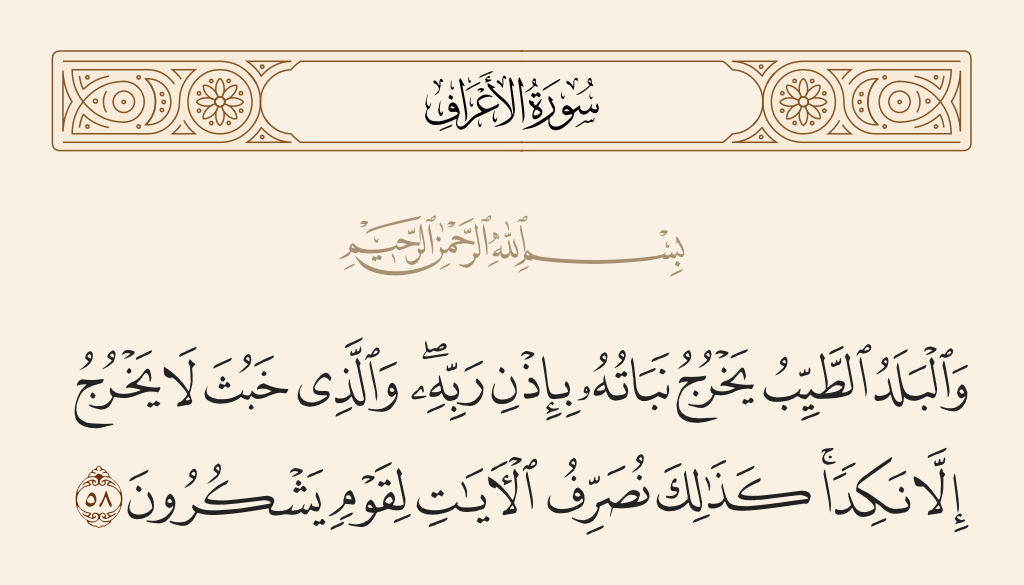 سُورَةُ الأَعْرَافِ
بِسْمِ ٱللَّهِ ٱلرَّحْمَٰنِ ٱلرَّحِيمِ
وَٱلْبَلَدُ ٱلطَّيِّبُ يَخْرُجُ نَبَاتُهُۥ بِإِذْنِ رَبِّهِۦ ۖ وَٱلَّذِى خَبُثَ لَا يَخْرُجُ
إِلَّا نَكِدًا ۚ كَذَٰلِكَ نُصَرِّفُ ٱلْـَٔايَـٰتِ لِقَوْمٍ يَشْكُرُونَ ٥٨